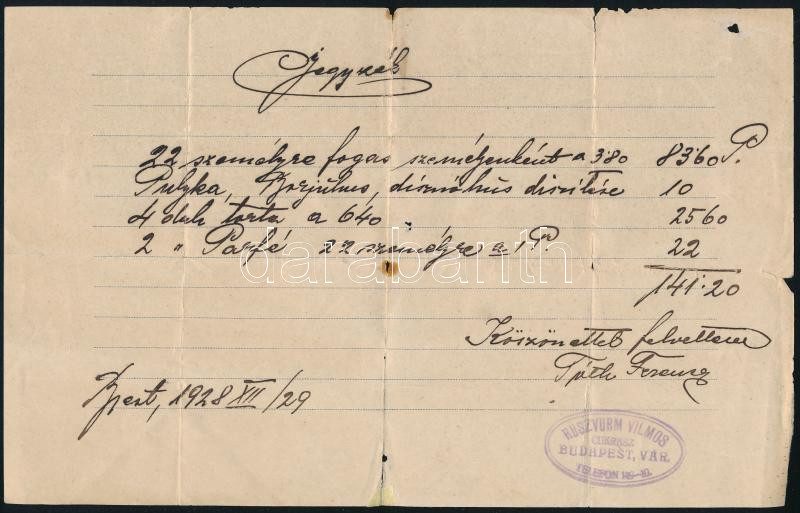 Jegyzék
22 személyre fogas személyenként a 3·80 83·60 P.
Pulyka, Borjúhús, disznóhús diszitése 10
4 dub torta a 6 40 25 60
2 " Parfé 22 személyre a 1 P. 22
141·20
Köszönettel felvettem
Tóth Ferenc
Bpest, 1928 XII/29
RUSZVURM VILMOS
CUKRÁSZ
BUDAPEST, VÁR.
TELEFON
darabanth